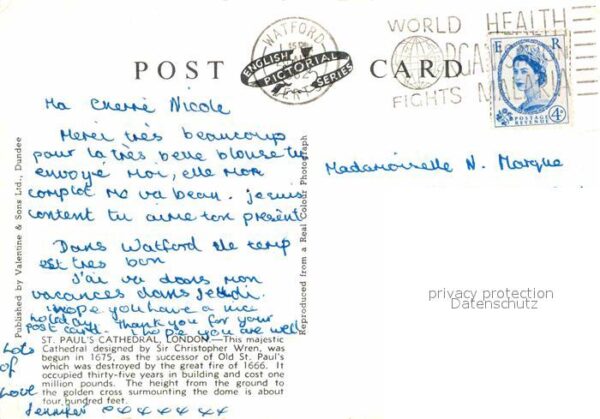 POST CARD
WATFORD
HERTS
ENGLISH
PICTORIAL
SERIES
WORLD HEALTH
FIGHTS MALARIA
E R
POSTAGE
REVENUE
4D
Ma Cherré Nicole
Merci très beaucoup
pour la très belle blouse tu
envoyé moi, elle mon
complot me va beau. je suis
content tu aime ton présent
Dans Watford le temp
est très bon
J'ai va dans mon
vacances dans Jeudi.
i hope you have a nice
holiday. Thank you for your
post card. i hope you are well
Lots
of
Love
Jennifer xxxxxxx
Madamoiselle N. Marque
Published by Valentine & Sons Ltd., Dundee
Reproduced from a Real Colour Photograph
ST. PAUL'S CATHEDRAL, LONDON.—This majestic
Cathedral designed by Sir Christopher Wren, was
begun in 1675, as the successor of Old St. Paul's
which was destroyed by the great fire of 1666. It
occupied thirty-five years in building and cost one
million pounds. The height from the ground to
the golden cross surmounting the dome is about
four hundred feet.
privacy protection
Datenschutz